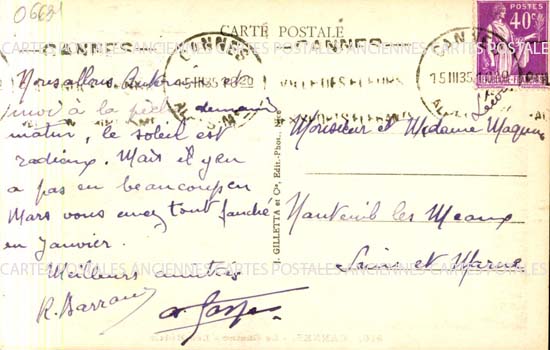 06631
CARTE POSTALE
POSTES
40c
CANNES
CANNES
CANNES
15 III 35
15 III 35
VILLE DES FLEURS
CARTES POSTALES ANCIENNES CARTES POSTALES ANCIENNES CARTES POSTALES ANCIENNES
Nous allons
à la pêche demain
matin, le soleil est
radieux. Mais il y en
a pas eu beaucoup en
Mars vous avez tout fauché
en Janvier.
Meilleurs amitiés
R. Barraud
GILLETTA et Cie, Edit.-Phot. - Nice
Monsieur et Madame
Nanteuil les Meaux
Seine et Marne
CANNES